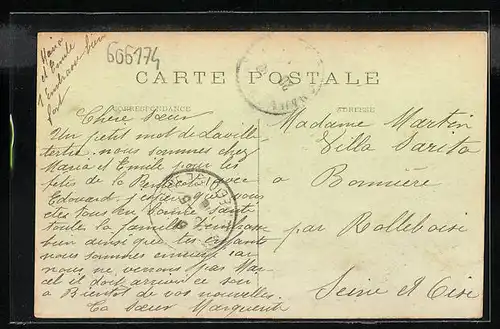 Maria
et Emile
t'Embrasse bien
fort
666174
CARTE POSTALE
CORRESPONDANCE
ADRESSE
Chère Sœur
Un petit mot de Laville
tertre nous sommes chez
Maria et Emile pour les
fetes de la Pentecote avec
Edouard j'espere que vous
etes tous en bonne Santé
toute la famille t'embrasse
bien ainsi que tes enfants
nous sommes car
nous ne venons pas
et il doit arriver ce soir
a Bientot de vos nouvelles
Ta Sœur Marguerite
Madame Martin
Villa Sarita
a Bonnière
par Rolleboise
Seine et Oise